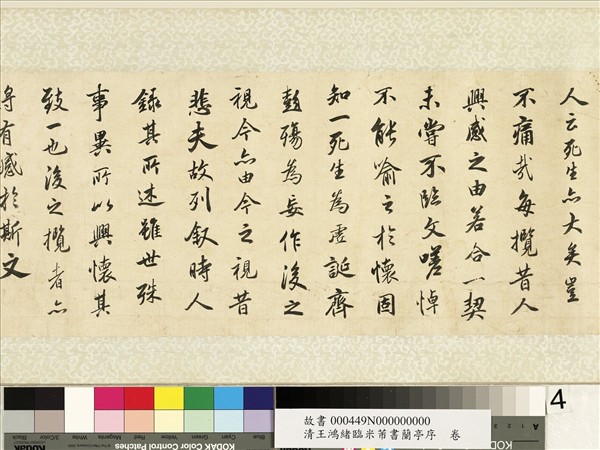 人云死生亦大矣豈
不痛哉每攬昔人
興感之由若合一契
未嘗不臨文嗟悼
不能喻之於懷固
知一死生為虛誕齊
彭殤為妄作後之
視今亦由今之視昔
悲夫故列敘時人
錄其所述雖世殊
事異所以興懷其
致一也後之攬者亦
將有感於斯文
4
故書 000449N000000000
清王鴻緒臨米芾書蘭亭序 卷
KODAK Color Control Patches
Blue
Cyan
Green
Yellow
Red
Magenta
White
3/Color
Black